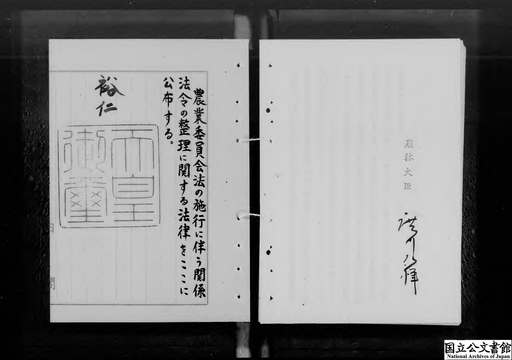 農業委員会法の施行に伴う関係
法令の整理に関する法律をここに
公布する。
裕仁
天皇
御璽
農林大臣
国立公文書館
National Archives of Japan